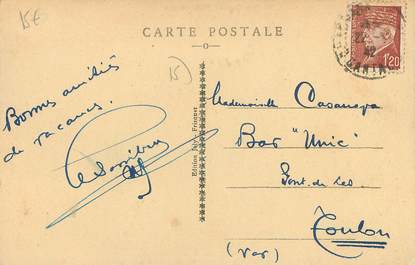 15€
CARTE POSTALE
15)
1F20
Bonnes amitiés
de vacances.
Mademoiselle Casanova
Bar "Unic"
Pont du Las
Toulon
(Var)